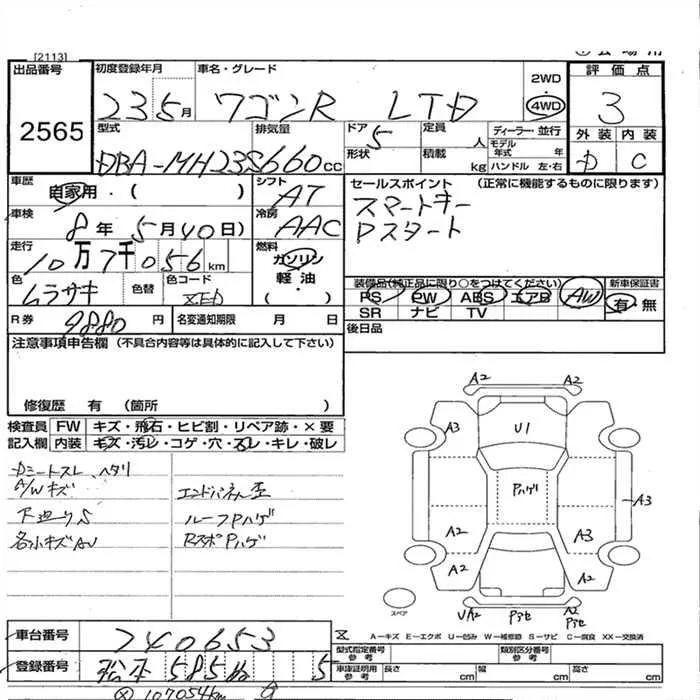 [2113]
出品番号 初度登録年月 車名・グレード 2WD 評価点
2565 23 5月 ワゴンR LTD 4WD 3
型式 排気量 ドア 5 定員 人 ディーラー・並行 外装 内装
DBA-MH23S 660cc 形状 積載 kg モデル年式 年 ハンドル 左・右 D C
車歴 自家用・( ) シフト AT セールスポイント (正常に機能するものに限ります)
車検 8年5月40日) 冷房 AAC スマートキー
Pスタート
走行 10万7千056km 燃料 ガソリン 軽油・( )
色 ムラサキ 色替 色コード XED
装備品(純正品に限り○をつけてください) 新車保証書
PS PW ABS エアB AW 有・無
SR ナビ TV
R券 9880円 名変通知期限 月 日 後日品
注意事項申告欄(不具合内容等は具体的に記入して下さい)
修復歴 有 (箇所 )
検査員 FW キズ・飛石・ヒビ割・リペア跡・×要
記入欄 内装 キズ・汚レ・コゲ・穴・スレ・キレ・破レ
Dミートスレ、ヘタリ
A/Wキズ エンドパネル歪
下廻りS ルーフPハゲ
名小キズAU RスポPハゲ
A2 A2
A3 U1
Pハゲ A3
A2 A3
A2 A2
スペア UA2 Pアセ A2
Pアセ
A-キズ E-エクボ U-凹み W-補修跡 S-サビ C-腐食 XX-交換済
車台番号 740653 型式指定番号 参考 類別区分番号 参考
登録番号 松本 585 5 車庫証明用 参考 長さ cm 幅 cm 高さ cm
107054km